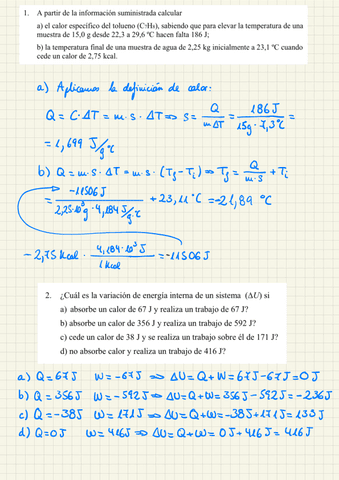 1. A partir de la información suministrada calcular
a) el calor específico del tolueno (C₇H₈), sabiendo que para elevar la temperatura de una
muestra de 15,0 g desde 22,3 a 29,6 ºC hacen falta 186 J;
b) la temperatura final de una muestra de agua de 2,25 kg inicialmente a 23,1 ºC cuando
cede un calor de 2,75 kcal.
a) Aplicamos la definición de calor:
Q = C · ΔT = m · s · ΔT ⇒ s = Q / m ΔT = 186 J / 15g · 7,3ºC =
= 1,699 J/g·ºC
b) Q = m · s · ΔT = m · s · (Tf - Ti) ⇒ Tf = Q / m · s + Ti
= -11506 J / 2,25·10³ g · 4,184 J/g·ºC + 23,11 ºC = -21,89 ºC
- 2,75 Kcal · 4,184·10³ J / 1 Kcal = -11506 J
2. ¿Cuál es la variación de energía interna de un sistema (ΔU) si
a) absorbe un calor de 67 J y realiza un trabajo de 67 J?
b) absorbe un calor de 356 J y realiza un trabajo de 592 J?
c) cede un calor de 38 J y se realiza un trabajo sobre él de 171 J?
d) no absorbe calor y realiza un trabajo de 416 J?
a) Q = 67 J W = -67 J ⇒ ΔU = Q + W = 67 J - 67 J = 0 J
b) Q = 356 J W = -592 J ⇒ ΔU = Q + W = 356 J - 592 J = -236 J
c) Q = -38 J W = 171 J ⇒ ΔU = Q + W = -38 J + 171 J = 133 J
d) Q = 0 J W = 416 J ⇒ ΔU = Q + W = 0 J + 416 J = 416 J